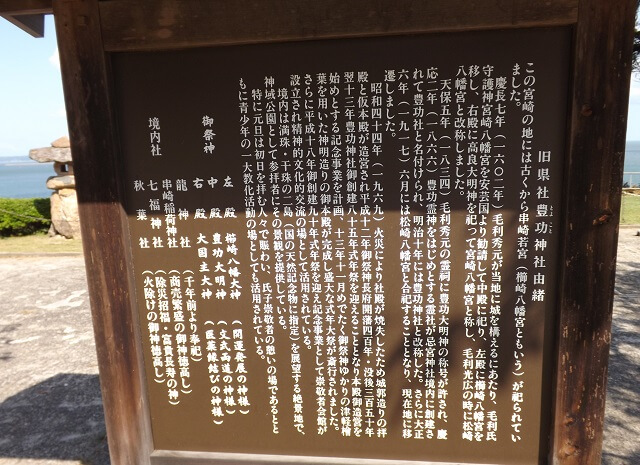 旧県社豊功神社由緒
この宮崎の地には古くから串崎若宮(櫛崎八幡宮ともいう)が祀られてい
ました。
慶長七年(一六〇二年)毛利秀元が当地に城を構えるにあたり、毛利氏
守護神宮崎八幡宮を安芸国より勧請して中殿に祀り、左殿に櫛崎八幡宮を
移し、右殿に高良大明神を祀って宮崎八幡宮と称し、毛利光広の時に松崎
八幡宮と改称しました。
天保五年(一八三四)毛利秀元の霊祠に豊功大明神の称号が許され、慶
応二年(一八六六)豊功霊神をはじめとする霊社が忌宮神社境内に創建さ
れて豊功社と名付けられ、明治十年には豊功神社と改称した。さらに大正
六年(一九一七)六月には松崎八幡宮と合祀することとなり、現在地に移
遷しました。
昭和四十四年(一九六九)火災により社殿が焼失したため城郭造りの拝
殿と仮本殿が造営され平成十二年御祭神長府開藩四百年・没後三百五十年
翌十三年豊功神社御創建八十五年式年祭を迎えることとなり本殿御造営を
始めとする記念事業を計画、十三年十一月めでたく御祭神ゆかりの津軽檜
葉を用いた神明造りの御本殿が完成し盛大な式年大祭が斎行されました。
さらに平成十八年御創建九十年式年祭を迎え記念事業として崇敬者会館が
設立され精神的文化的交流の場として活用されている。
境内は満珠・干珠の二島(国の天然記念物に指定)を展望する絶景地で、
神域公園として参拝者にその景観を提供している。
特に元旦は初日を拝む人々で賑わい、氏子崇敬者の憩いの場であるとと
もに青少年の一大教化活動の場としても活用されている。
御祭神
左 殿 櫛崎八幡大神 (開運発展の神様)
中 殿 豊功大明神 (文武両道の神様)
右 殿 大国主大神 (医薬縁結びの神様)
境内社
龍神社 (千年前より奉祀)
串崎稲荷神社 (商売繁盛の御神徳高し)
七福神社 (除災招福・富貴長寿の神)
秋葉社 (火除けの御神徳高し)